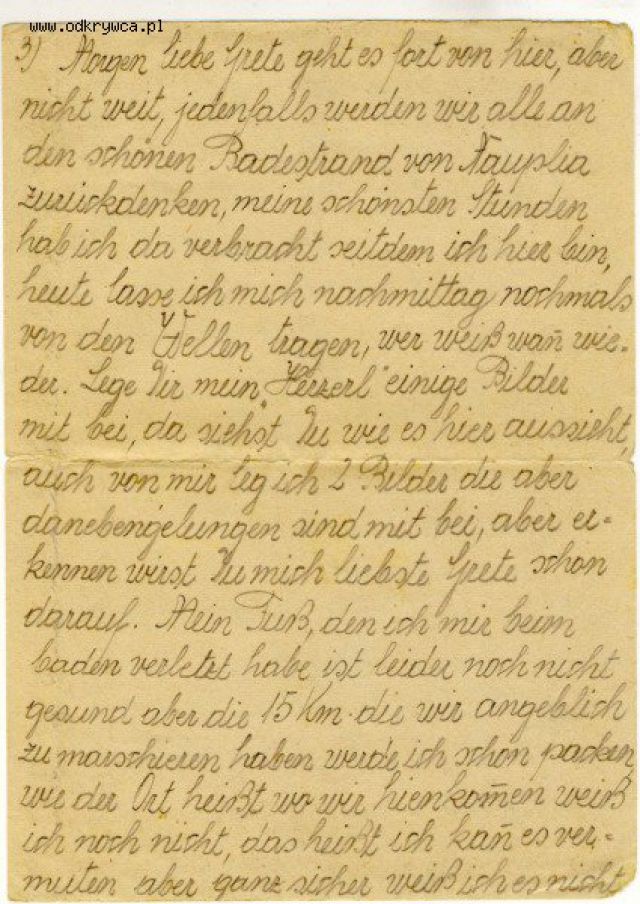 www.odkrywca.pl
3) Morgen liebe Grete geht es fort von hier, aber
nicht weit, jedenfalls werden wir alle an
den schönen Badestrand von Nauplia
zurückdenken, meine schönsten Stunden
hab ich da verbracht seitdem ich hier bin,
heute lasse ich mich nachmittag nochmals
von den Wellen tragen, wer weiß wan̄ wie-
der. Lege Dir mein „Herzerl" einige Bilder
mit bei, da siehst Du wie es hier aussieht,
auch von mir leg ich 2 Bilder die aber
danebengelungen sind mit bei, aber er-
kennen wirst Du mich liebste Grete schon
darauf. Mein Fuß, den ich mir beim
baden verletzt habe ist leider noch nicht
gesund aber die 15 Km. die wir angeblich
zu marschieren haben werde ich schon packen,
wie der Ort heißt wo wir hienkom̄en weiß
ich noch nicht, das heißt ich kan̄ es ver-
muten aber ganz sicher weiß ich es nicht